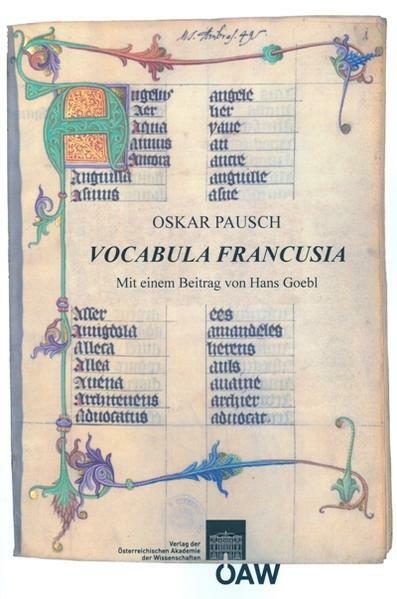 Ms. Ambras. 42.
Angelus angele
Aer her
Aqua yaue
Annus an
Ancora ancre
Anguilla anguille
Asinus asne
OSKAR PAUSCH
VOCABULA FRANCUSIA
Mit einem Beitrag von Hans Goebl
Asser ees
Amigdola amandeles
Alleca herens
Allea auls
Auena auaine
Architenens archier
Aduocatus aduocat
Verlag der
Österreichischen Akademie
der Wissenschaften
ÖAW